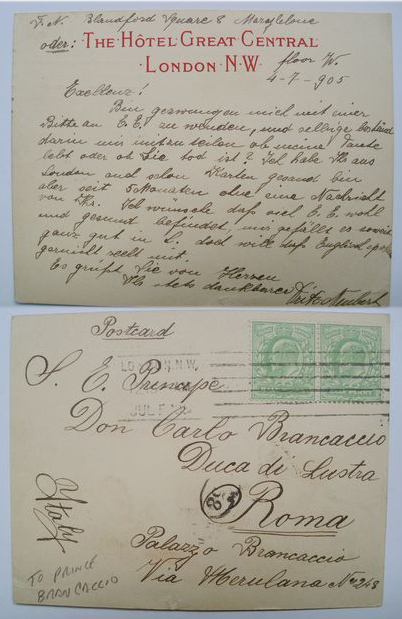 Blandford Square 8 Marylebone
oder: THE HÔTEL GREAT CENTRAL
LONDON N·W·
floor W.
4-7-905
Exellenz!
Bin gezwungen mich mit einer
Bitte an E. E. zu wenden, und selbige bestünd
darin mir mitzuteilen ob meine Tante
lebt oder ob Sie tod ist? Ich habe Ihr aus
London auch schon Karten gesand bin
aber seit 5 Monaten ohne eine Nachricht
von Ihr. Ich wünsche daß sich E. E. wohl
und gesund befindet, mir gefällt es soweit
ganz gut in L. doch will daß Englisch
recht mit.
Es grüßt Sie von Herzen
Ihr stets dankbarer
Postcard
LONDON. N.W.
JUL
S. E. Principe
Don Carlo Brancaccio
Duca di Lustra
Roma
Palazzo Brancaccio
Via Merulana No 248
Italy
TO PRINCE
BRANCACCIO